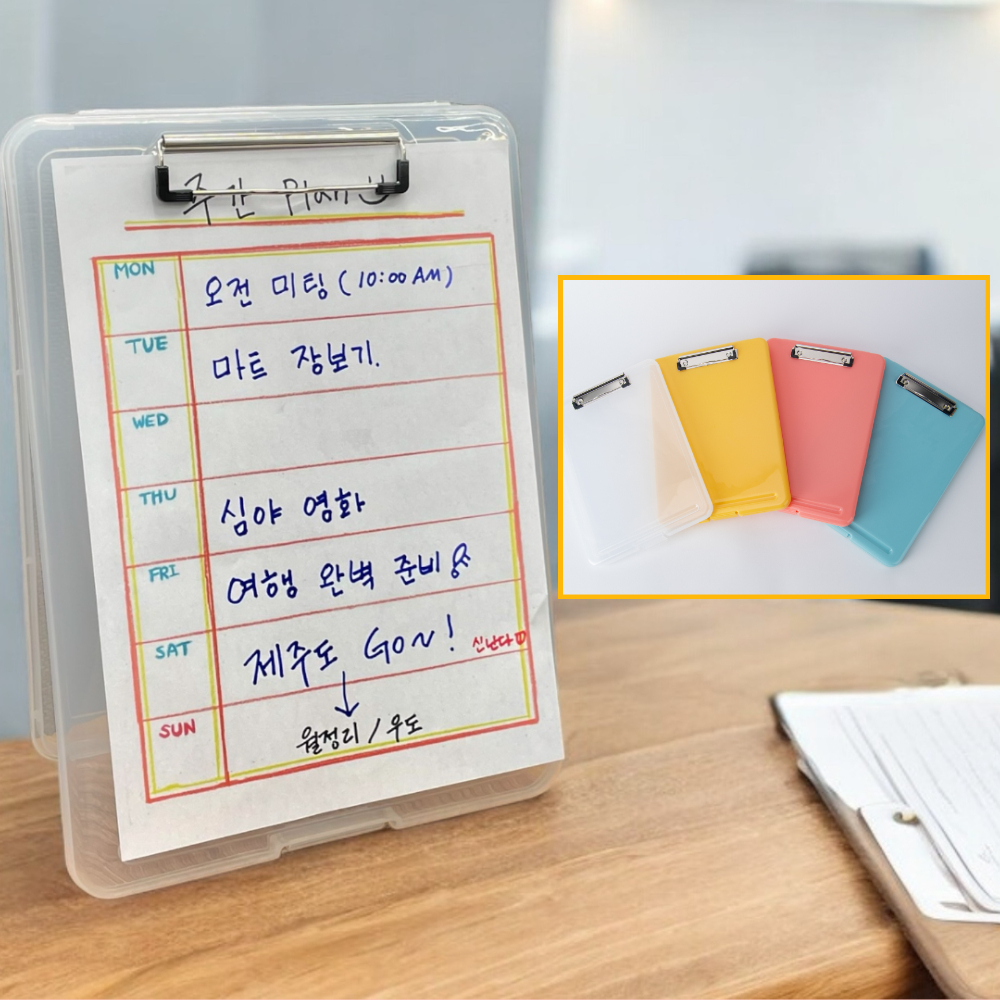 주간 Plan
MON 오전 미팅 (10:00 AM)
TUE 마트 장보기.
WED
THU 심야 영화
FRI 여행 완벽 준비
SAT 제주도 GO~! 신난다
SUN 월정리 / 우도